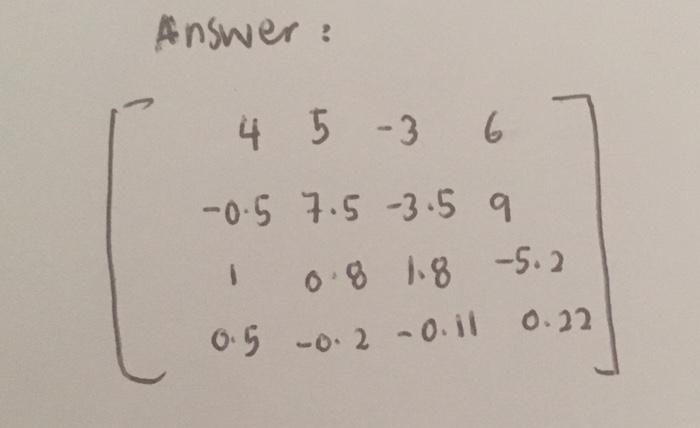 Answer :
4 5 -3 6
-0.5 7.5 -3.5 9
1 0.8 1.8 -5.2
0.5 -0.2 -0.11 0.22